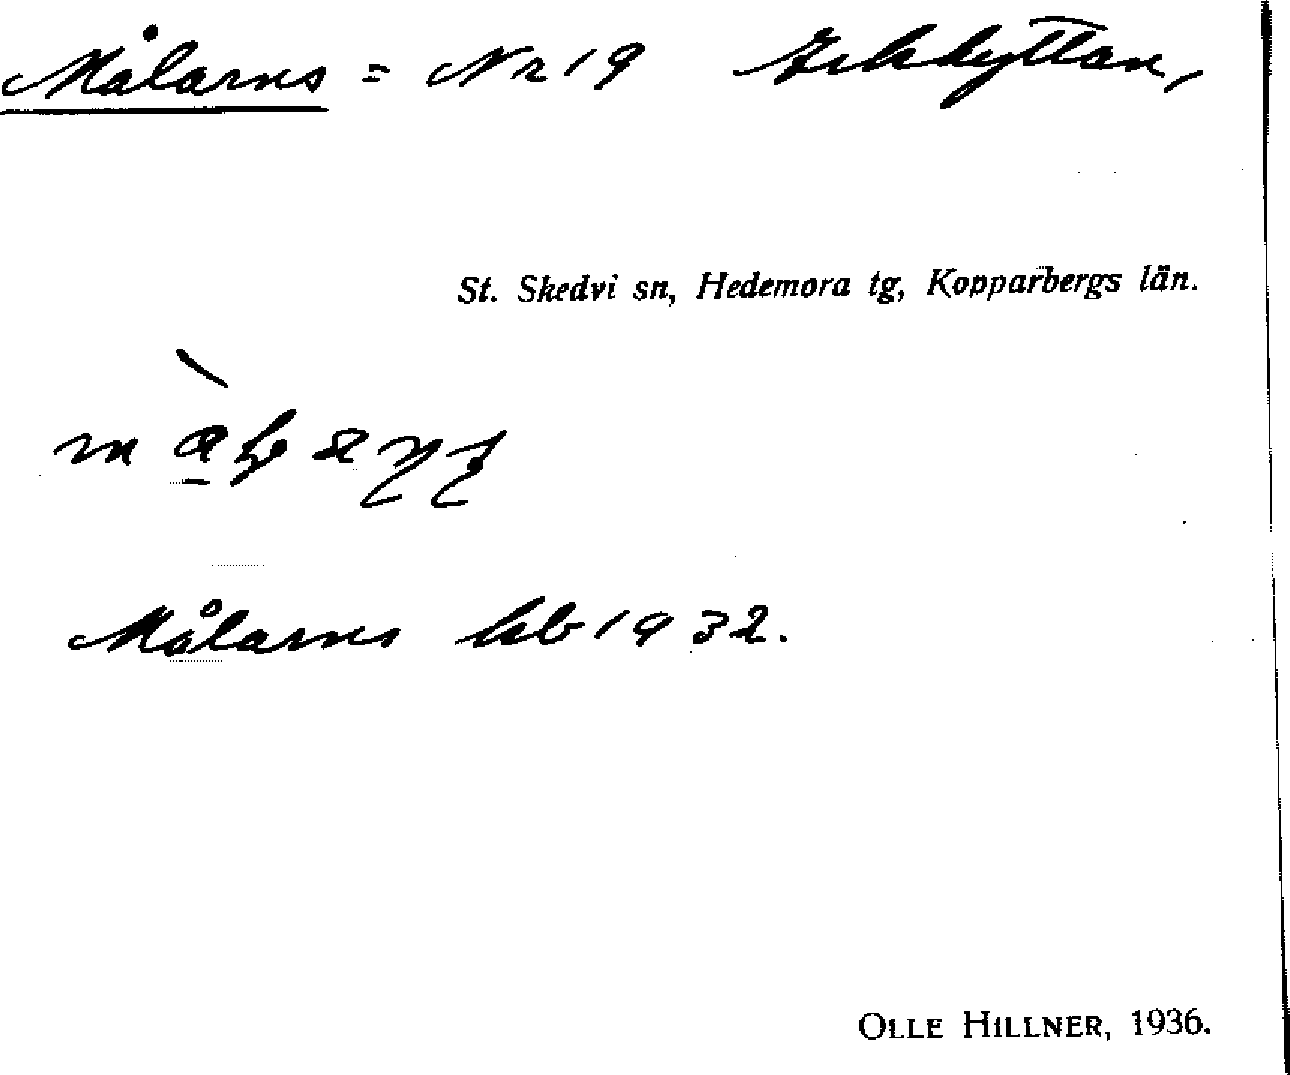 Målarns = Nr 19
St. Skedvi sn, Hedemora tg, Kopparbergs län.
Målarns hb 1932.
OLLE HILLNER, 1936.